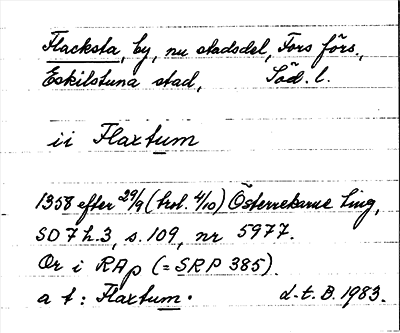 Flacksta, by, nu stadsdel, Fors förs.,
Eskilstuna stad, Söd. l.
ii Flaxtum
1358 efter 29/9 (trol. 4/10) Österrekarne ting,
SD 7 h.3, s. 109, nr 5977.
Or i RAp (= SRP 385).
a t: Flaxtum. d.-t. B. 1983.